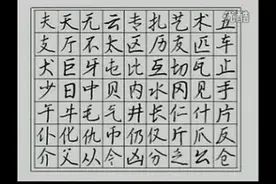 夫天无云专扎艺术五
支厅不太区历友匹车
犬巨牙屯比互切瓦止
少日中贝内水冈见手
午牛毛气井长仁什片
仆化仇币仍仅斤瓜反
介父从今凶分乏公仓